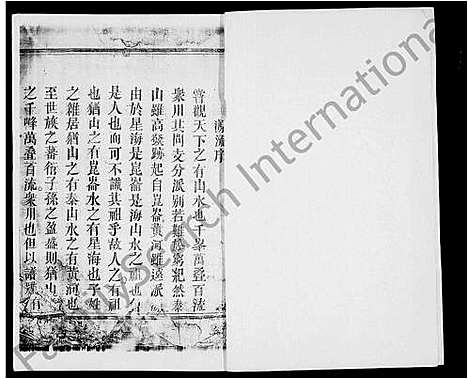 溯源序
嘗觀天下之有山水也千峯萬叠百流
衆川其間支分派別若難窮
然泰
山雖高發跡起自崑崙黃河雖遠派
由於星海是崑崙是海山水之祖也
是人也而可不識其祖乎故人之有
也猶山之有崑崙水之有星海也子姓
之雜居猶山之有泰山水之有黃河也
至世族之蕃衍子孫之盈盛則猶山
之千峰萬叠百流衆川也但以譜
FamilySearch International